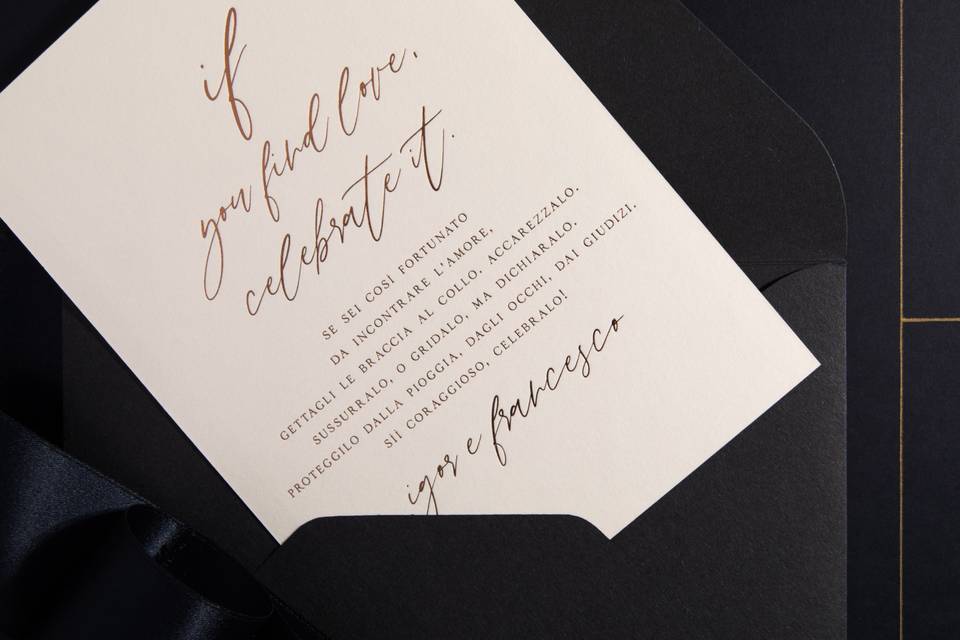 if
you find love,
celebrate it.
SE SEI COSÌ FORTUNATO
DA INCONTRARE L'AMORE,
GETTAGLI LE BRACCIA AL COLLO. ACCAREZZALO.
SUSSURRALO, O GRIDALO, MA DICHIARALO.
PROTEGGILO DALLA PIOGGIA, DAGLI OCCHI, DAI GIUDIZI.
SII CORAGGIOSO, CELEBRALO!
igor e francesco